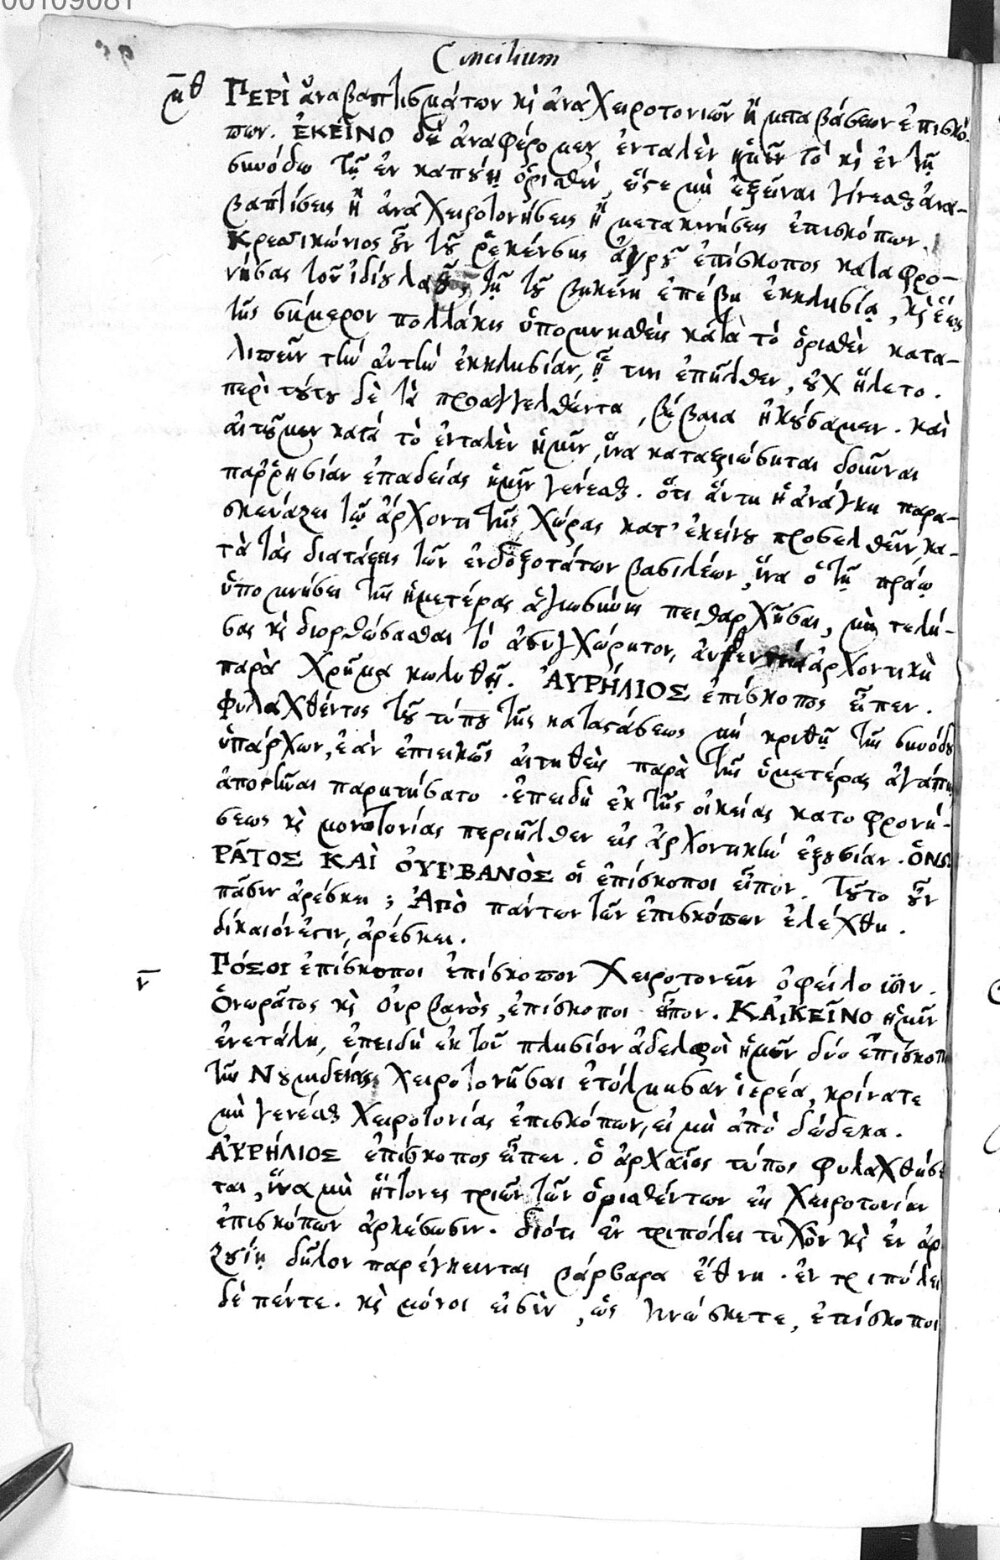 00109081
Concilium
μ̅θ ΠΕΡῚ ἀναβαπτισμάτων κὶ ἀναχειροτονιῶν ἢ μεταβάσεων ἐπισκό-
πων. ἘΚΕΙ͂ΝΟ δὲ ἀναφέρομεν ἐνταλὲν ἡμῖν τὸ κὶ ἐν τῇ
συνόδω τῇ ἐν καπούῃ ὁρισθὲν, ὥςε μὴ ἐξεῖναι γίνεσθαι ἀνα-
βαπτίσεις ἢ ἀναχειροτονήσεις ἢ μετακινήσεις ἐπισκόπων.
Κρεσικώνιος οὖν τοῦ ῥεκένσης ἀγροῦ ἐπίσκοπος καταφρο-
νήσας τοῦ ἰδίου λαοῦ, τῇ τοῦ βηκένη ἐπέβη ἐκκλησίᾳ, κὶ ἕως
τῆς σήμερον πολλάκις ὑπομνησθεὶς κατὰ τὸ ὁρισθὲν κατα-
λιπεῖν τὴν αὐτὴν ἐκκλησίαν, ᾗ τινι ἐπῆλθεν, οὐχ ἥλετο.
περὶ τούτου δὲ τὰ προαγγελθέντα, βέβαια ἠκούσαμεν. καὶ
αἰτοῦμεν κατὰ τὸ ἐνταλὲν ἡμῖν, ἵνα καταξιώσηται δοῦναι
παῤῥησίαν ἐπαδείας ἡμῖν γενέσθαι. ὅτι αὕτη ἡ ἀνάγκη παρα-
σκευάζει τῷ ἄρχοντι τῆς χώρας κατ' ἐκείνου προσελθεῖν κα-
τὰ τὰς διατάξεις τῶν ἐνδοξοτάτων βασιλέων, ἵνα ὁ τῇ πράῳ
ὑπομνήσει τῆς ἡμετέρας ἁγιωσύνης πειθαρχῆσαι, μὴ θελή-
σας κὶ διορθώσασθαι τὸ ἀσυγχώρητον, αὐθεντίᾳ ἀρχοντικῇ
παρὰ χρῆμα κωλυθῇ. ἈΥΡΉΛΙΟΣ ἐπίσκοπος εἶπεν.
φυλαχθέντος τοῦ τύπου τῆς καταςάσεως μὴ κριθῇ τῆς συνόδου
ὑπάρχων, ἐὰν ἐπιεικῶς αἰτηθεὶς παρὰ τῆς ὑμετέρας ἀγάπης
ἀποςῆναι παρῃτήσατο. ἐπειδὴ ἐκ τῆς οἰκείας καταφρονή-
σεως κὶ μονοτονίας περιῆλθεν εἰς ἀρχοντικὴν ἐξουσίαν. ὉΝΩ-
ΡΑ͂ΤΟΣ ΚΑῚ ΟΥ̓ΡΒΑΝῸΣ οἱ ἐπίσκοποι εἶπον. τοῦτο οὖν
πᾶσιν ἀρέσκει; Ἀπὸ πάντων τῶν ἐπισκόπων ἐλέχθη.
δίκαιόν ἐςιν, ἀρέσκει.
ν̅ Πόσοι ἐπίσκοποι ἐπίσκοπον χειροτονεῖν ὀφείλουσιν.
Ὁνωρᾶτος κὶ οὐρβανὸς, ἐπίσκοποι εἶπον. ΚἈΚΕΙ͂ΝΟ ἡμῖν
ἐνετάλη, ἐπειδὴ ἐκ τοῦ πλησίον ἀδελφοὶ ἡμῶν δύο ἐπίσκοποι
τῆς Νουμιδείας χειροτονῆσαι ἐτόλμησαν ἱερέα, κρίνατε
μὴ γενέσθαι χειροτονίας ἐπισκόπων, εἰ μὴ ἀπὸ δώδεκα.
ἈΥΡΉΛΙΟΣ ἐπίσκοπος εἶπεν. ὁ ἀρχαῖος τύπος φυλαχθήσε-
ται, ἵνα μὴ ἥττονες τριῶν τῶν ὁρισθέντων εἰς χειροτονίαν
ἐπισκόπων ἀρκέσωσιν. διότι ἐν τριπόλει τυχὸν κὶ ἐν ἀρ-
ζουίῃ δῆλον παρέγκεινται βάρβαρα ἔθνη. ἐν τριπόλει
δὲ πέντε. κὶ μόνοι εἰσὶν, ὡς γινώσκετε, ἐπίσκοποι